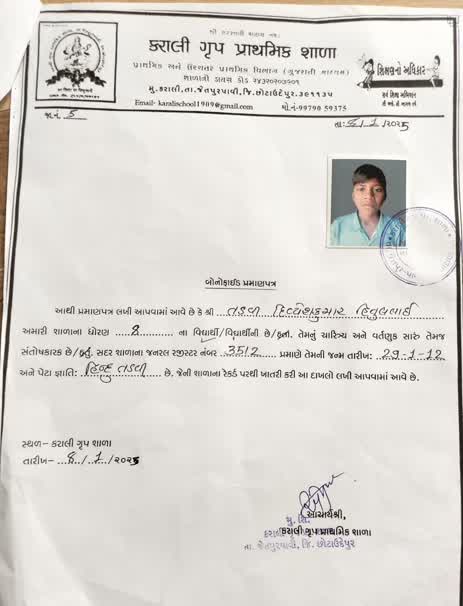 કરાલી ગૃપ પ્રાથમિક શાળા
પ્રાથમિક અને ઉચ્ચતર પ્રાથમિક વિભાગ (ગુજરાતી માધ્યમ)
શાળાનો ડાયસ કોડ
મુ.કરાલી,તા.જેતપુરપાવી,જિ.છોટાઉદેપુર.૩૯૧૧૩૫
Email- karalischool1909@gmail.com મો.નં-99790 59375
શિક્ષણનો અધિકાર
સર્વ શિક્ષા અભિયાન
જા.નં. 5
તા:- 8/1/૨૦૨5
બોનોફાઈડ પ્રમાણપત્ર
આથી પ્રમાણપત્ર લખી આપવામાં આવે છે કે શ્રી તડવી દિવ્યેશકુમાર
અમારી શાળાના ધોરણ 8 ના વિદ્યાર્થી/વિદ્યાર્થીની છે/હતા. તેમનું ચારિત્ર્ય અને વર્તણુક સારું તેમજ
સંતોષકારક છે/હતું. સદર શાળાના જનરલ રજીસ્ટર નંબર 3512 પ્રમાણે તેમની જન્મ તારીખ: 29-1-12
અને પેટા જ્ઞાતિ: હિન્દુ તડવી છે. જેની શાળાના રેકર્ડ પરથી ખાતરી કરી આ દાખલો લખી આપવામાં આવે છે.
સ્થળ– કરાલી ગૃપ શાળા
તારીખ– 8/1/૨૦૨5
આચાર્યશ્રી,
કરાલી ગૃપ પ્રાથમિક શાળા
તા. જેતપુરપાવી, જિ. છોટાઉદેપુર